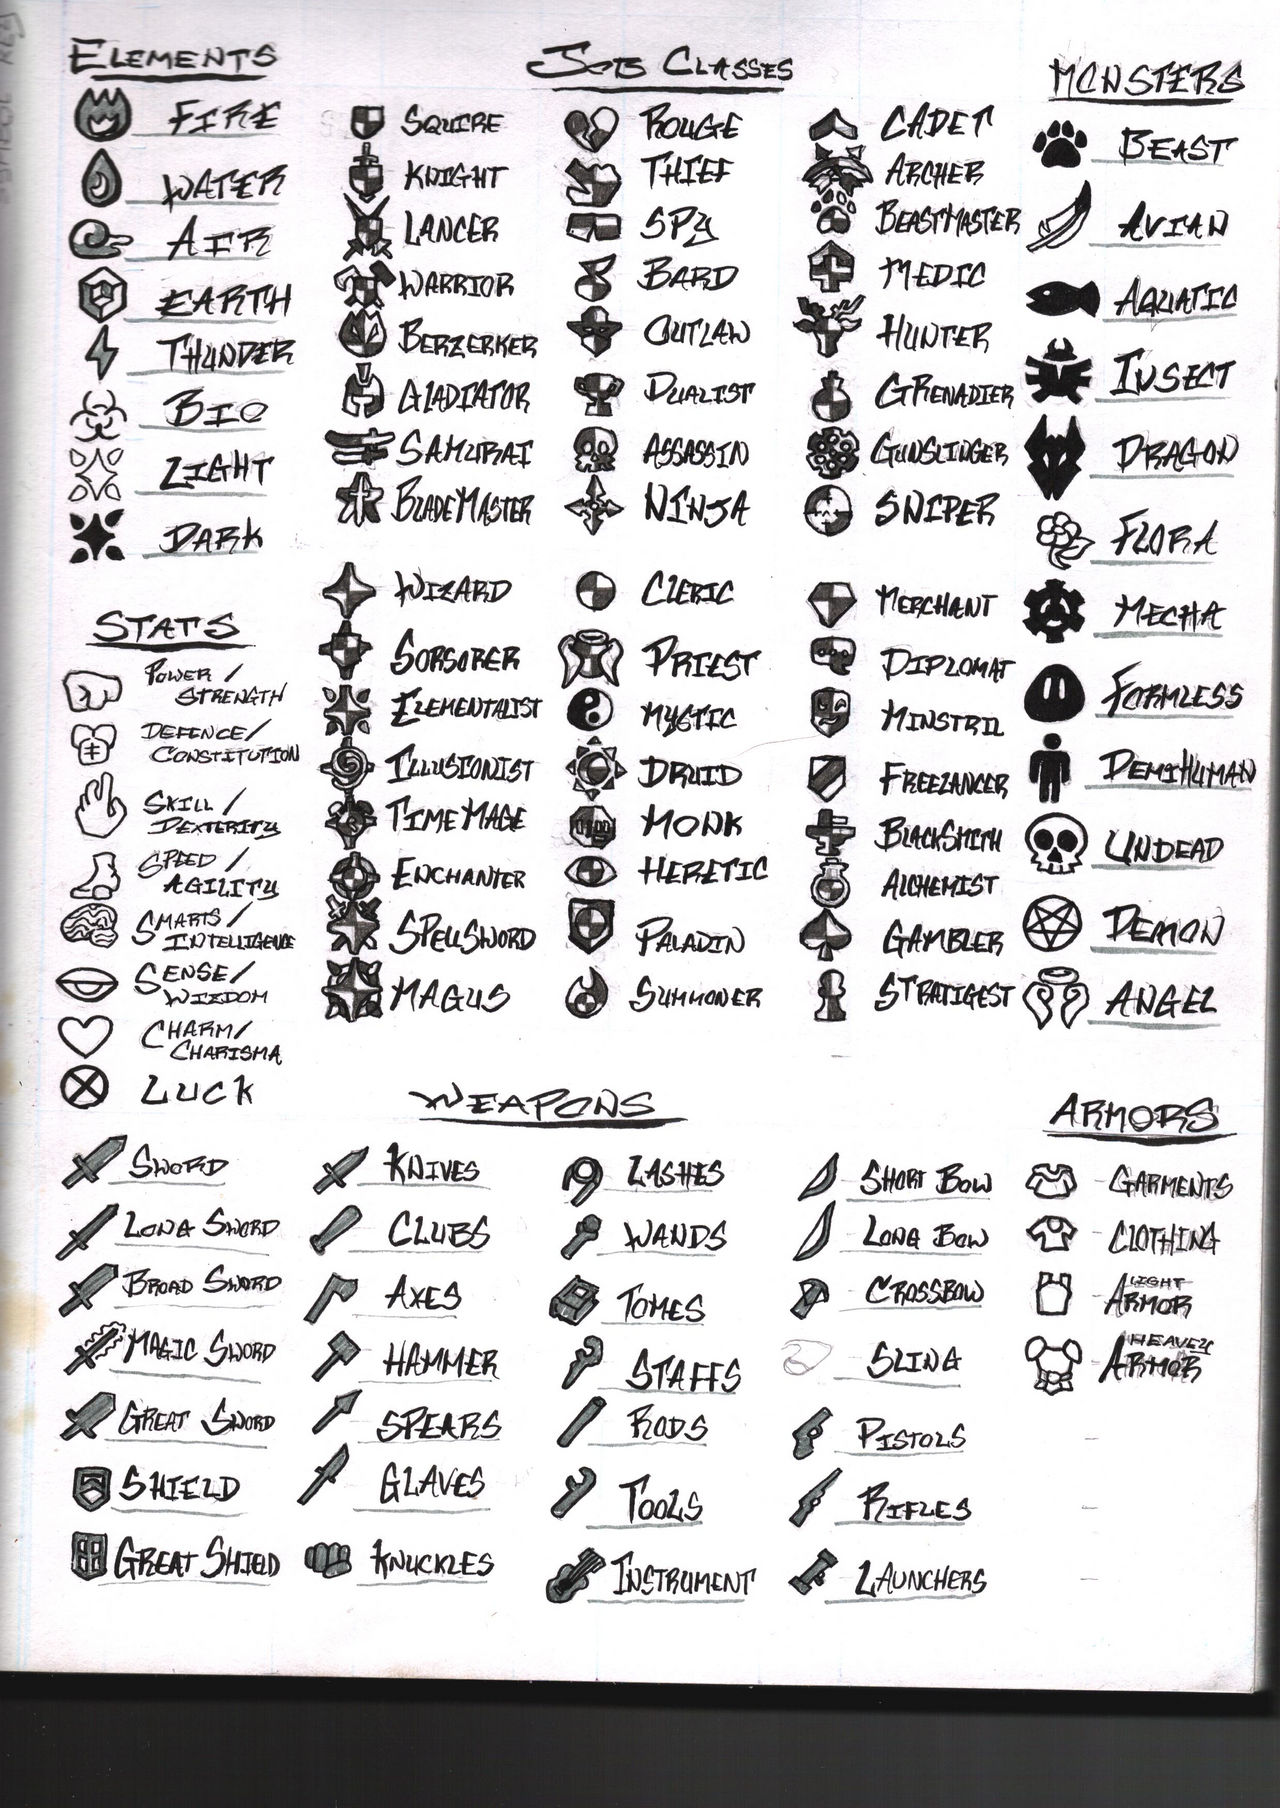 SYMBOL KEY
ELEMENTS
FIRE
WATER
AIR
EARTH
THUNDER
BIO
LIGHT
DARK
STATS
POWER /
STRENGTH
DEFENCE/
CONSTITUTION
SKILL /
DEXTERITY
SPEED /
AGILITY
SMARTS /
INTELLIGENCE
SENSE/
WIZDOM
CHARM/
CHARISMA
LUCK
JOB CLASSES
SQUIRE
KNIGHT
LANCER
WARRIOR
BERZERKER
GLADIATOR
SAMURAI
BLADEMASTER
WIZARD
SORSORER
ELEMENTALIST
ILLUSIONIST
TIME MAGE
ENCHANTER
SPELLSWORD
MAGUS
ROUGE
THIEF
SPY
BARD
OUTLAW
DUALIST
ASSASSIN
NINJA
CLERIC
PRIEST
MYSTIC
DRUID
MONK
HERETIC
PALADIN
SUMMONER
CADET
ARCHER
BEASTMASTER
MEDIC
HUNTER
GRENADIER
GUNSLINGER
SNIPER
MERCHANT
DIPLOMAT
MINSTRIL
FREELANCER
BLACKSMITH
ALCHEMIST
GAMBLER
STRATIGEST
MONSTERS
BEAST
AVIAN
AQUATIC
INSECT
DRAGON
FLORA
MECHA
FORMLESS
DEMIHUMAN
UNDEAD
DEMON
ANGEL
WEAPONS
SWORD
LONG SWORD
BROAD SWORD
MAGIC SWORD
GREAT SWORD
SHIELD
GREAT SHIELD
KNIVES
CLUBS
AXES
HAMMER
SPEARS
GLAVES
KNUCKLES
LASHES
WANDS
TOMES
STAFFS
RODS
TOOLS
INSTRUMENT
SHORT BOW
LONG BOW
CROSSBOW
SLING
PISTOLS
RIFLES
LAUNCHERS
ARMORS
GARMENTS
CLOTHING
LIGHT
ARMOR
HEAVEY
ARMOR